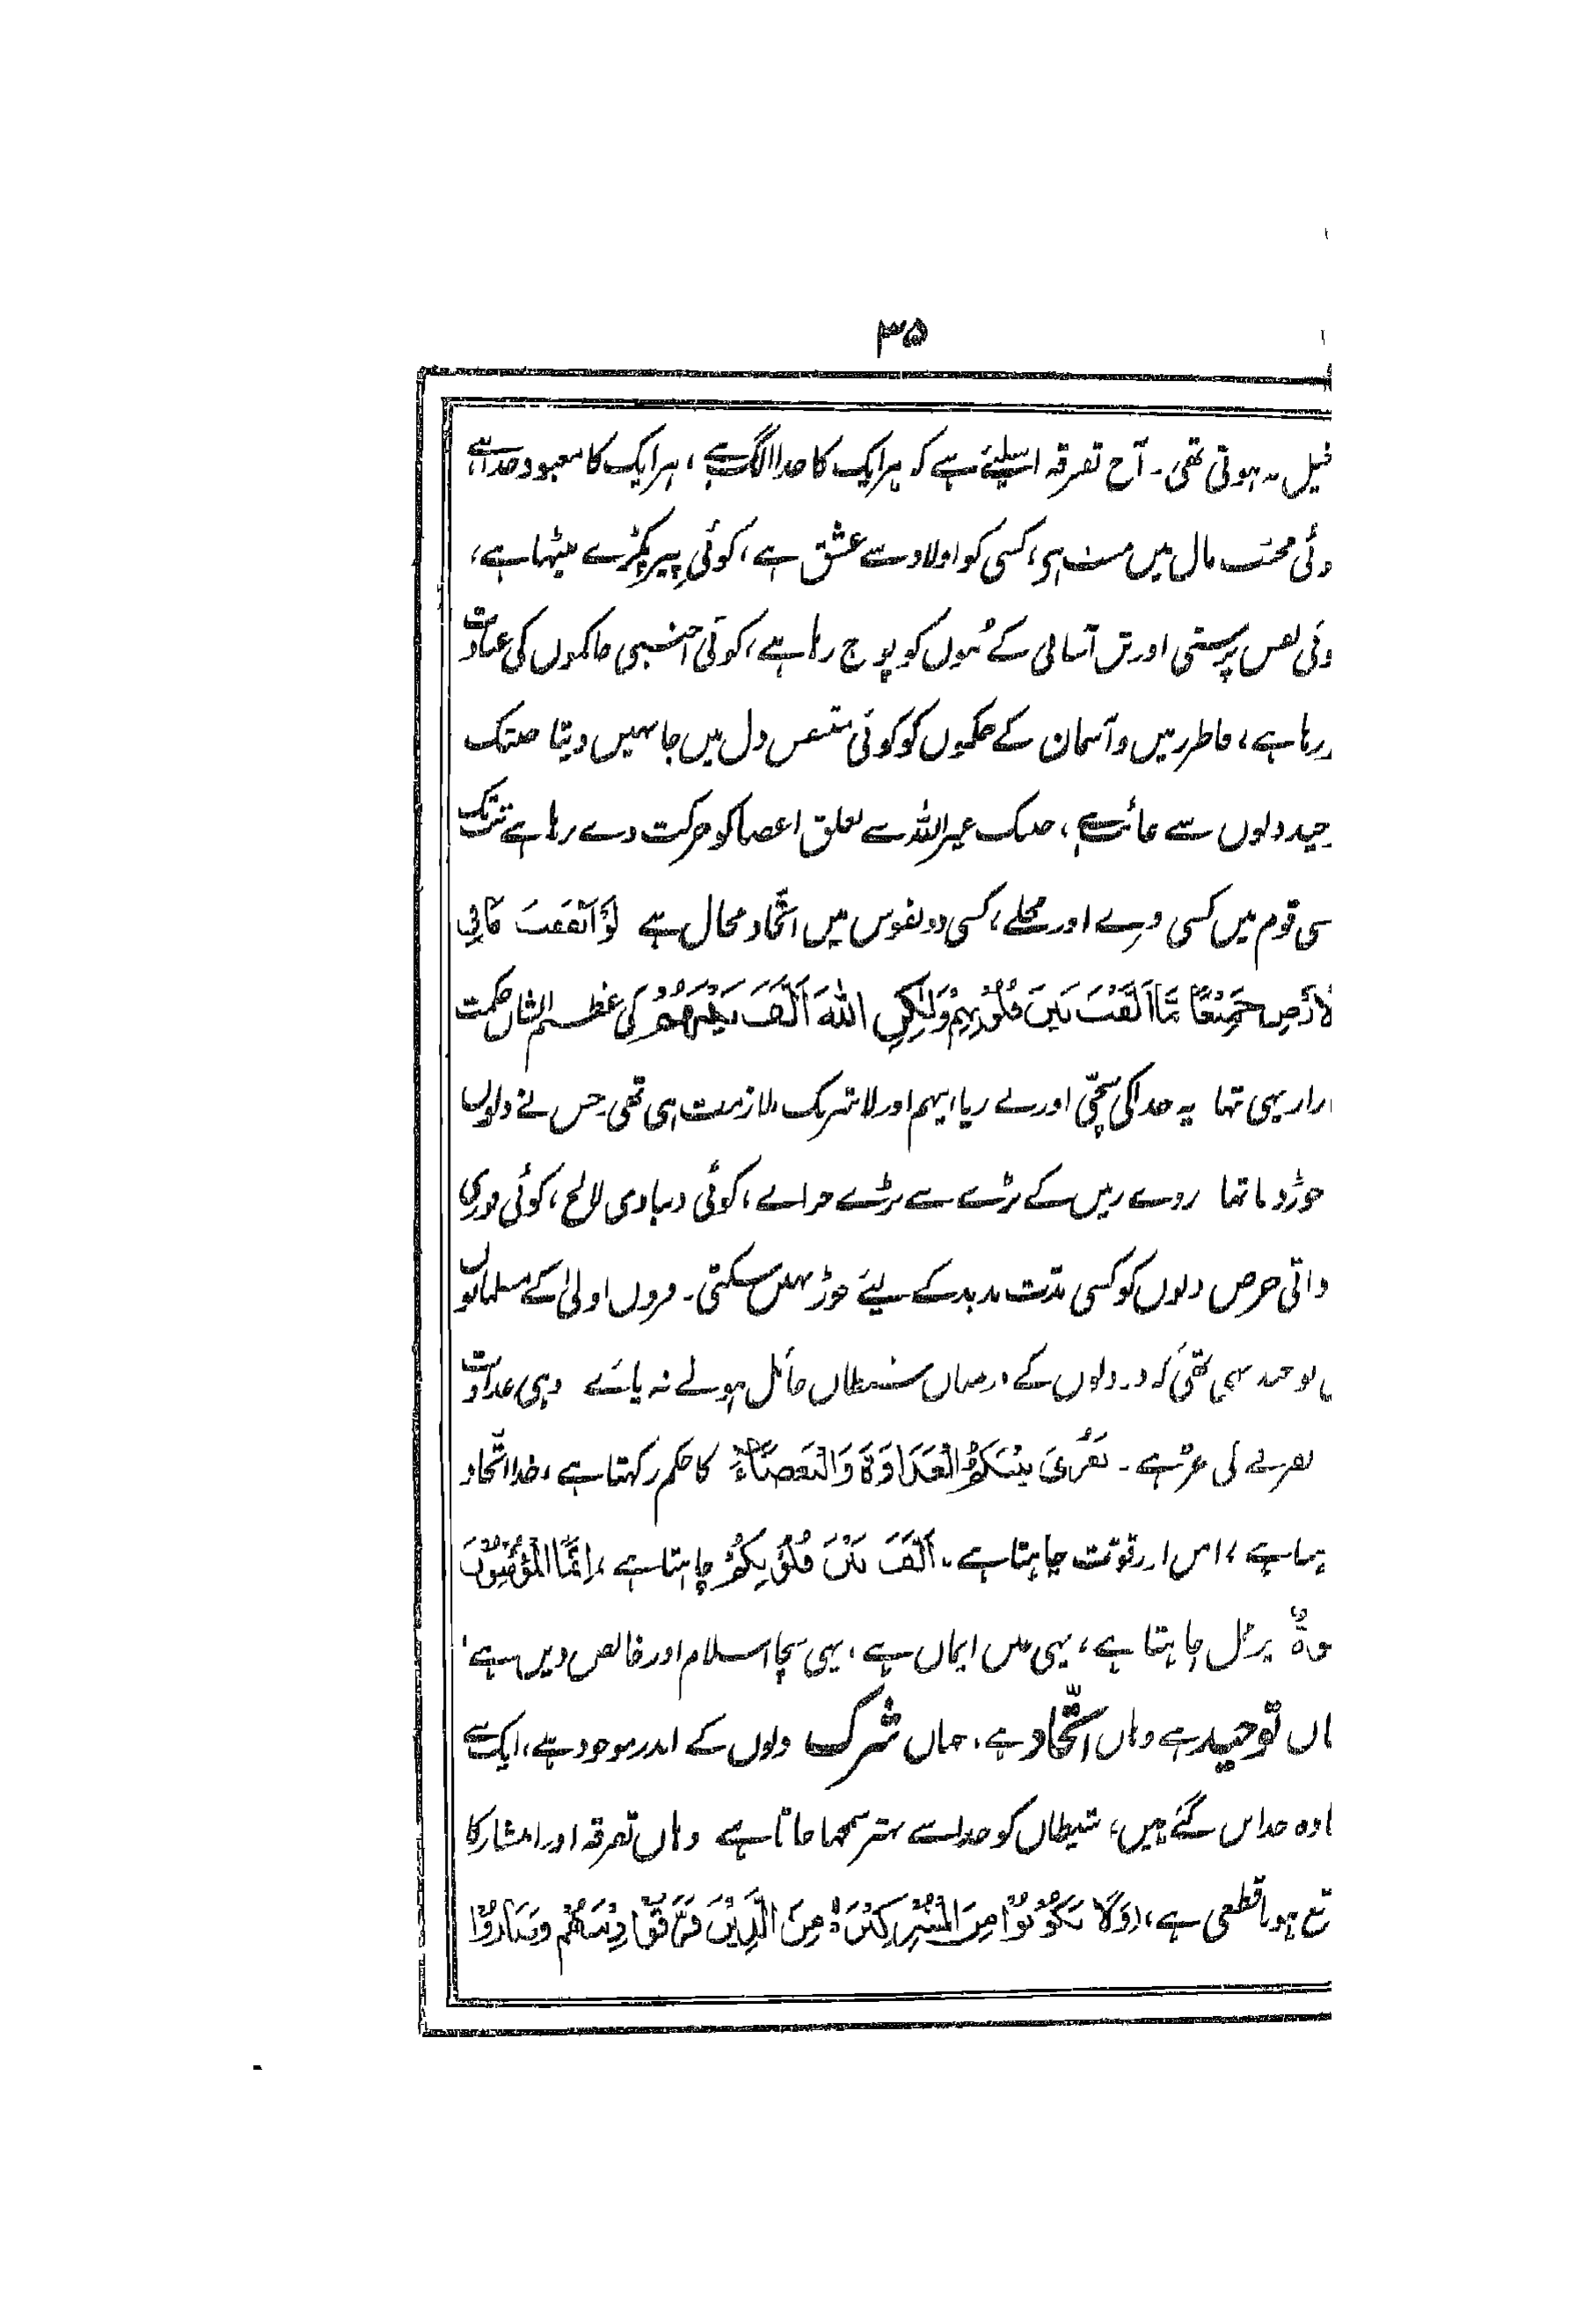 ۳۵
نہ ہوتی تھی۔ آج تفرقہ اسلیئے ہے کہ ہر ایک کا خدا الگ ہے، ہر ایک کا معبود جدا ہے
محبت مال میں مست ہی، کسی کو اولاد سے عشق ہے، کوئی پیر پکڑے بیٹھا ہے،
نفس پرستی اور تن آسانی کے بُتوں کو پوج رہا ہے، کوئی اجنبی حاکموں کی عبادت
رہا ہے، فاطر زمین و آسمان کے حکموں کو کوئی متنفس دل میں جا نہیں دیتا جبتک
دلوں سے غائب ہے، جبتک غیر اللہ سے تعلق اعضا کو حرکت دے رہا ہے تب تک
قوم میں کسی دیرے اور محلے، کسی دو نفوس میں اتّحاد محال ہے لَوْ اَنْفَقْتَ مَا فِی
الْاَرْضِ جَمِیْعًا مَّا اَلَّفْتَ بَیْنَ قُلُوْبِہِمْ وَلٰکِنَّ اللہَ اَلَّفَ بَیْنَھُمْ کی عظیم الشان حکمت
یہی تھا یہ خدا کی سچّی اور بے ریا، پیہم اور لا شریک ملازمت ہی تھی جس نے دلوں
جوڑ دیا تھا روے زمین کے بڑے سے بڑے خزانے، کوئی دنیاوی لالچ، کوئی فوری
ذاتی حرص دلوں کو کسی مدّت مدید کے لیئے جوڑ نہیں سکتی۔ قرون اولیٰ کے مسلمانوں
توحید یہی تھی کہ دو دلوں کے درمیان شیطان حائل ہونے نہ پائے وہی عداوت
تفرقے کی جڑ ہے۔ بَیْنَکُمُ الْعَدَاوَۃَ وَالْبَغْضَآءَ کا حکم رکھتا ہے، خدا اتّحاد
امن اور قوّت چاہتا ہے۔ اَلَّفَ بَیْنَ قُلُوْبِکُمْ چاہتا ہے، اِنَّمَا الْمُؤْمِنُوْنَ
پر عمل چاہتا ہے، یہی عین ایمان ہے، یہی سچا اسلام اور خالص دین ہے،
توحید ہے وہاں اتّحاد ہے، جہاں شرک دلوں کے اندر موجود ہے، ایک سے
خدا بن گئے ہیں، شیطان کو خدا سے بہتر سمجھا جاتا ہے وہاں تفرقہ اور انتشار کا
ہونا قطعی ہے، (وَلَا تَکُوْنُوْا مِنَ الْمُشْرِکِیْنَ مِنَ الَّذِیْنَ فَرَّقُوْا دِیْنَھُمْ وَکَانُوْا